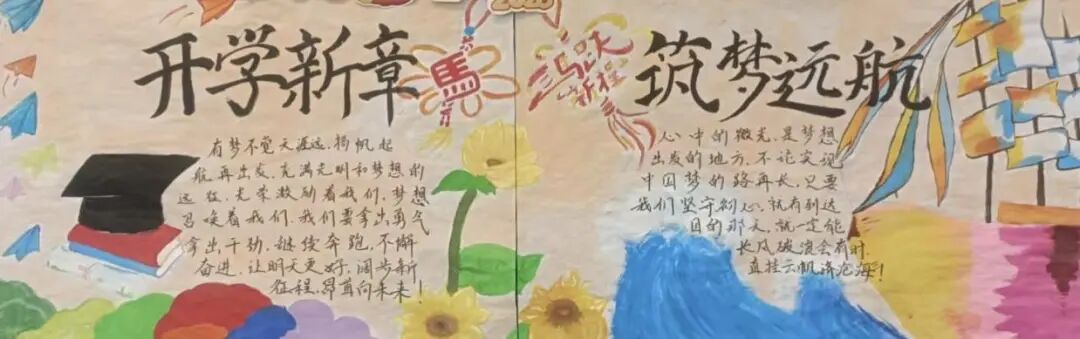 2026
开学新章
馬
马跃
新程
筑梦远航
有梦不觉天涯远，扬帆起
航再出发，充满光明和梦想的
远征，光荣激励着我们，梦想
召唤着我们，我们要拿出勇气
拿出干劲，继续奔跑，不懈
奋进，让明天更好，阔步新
征程，昂首向未来！
心中的微光，是梦想
出发的地方，不论实现
中国梦的路再长，只要
我们坚守初心，就有到达
目的那天，就一定能
长风破浪会有时，
直挂云帆济沧海！